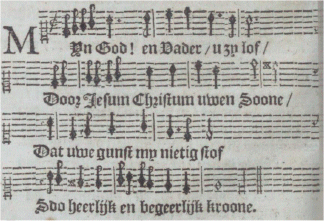 MYn God! en Vader / u zy lof /
Door Jesum Christum uwen Soone /
Dat uwe gunst my nietig stof
Sdo heerlijk en begeerlijk kroone.